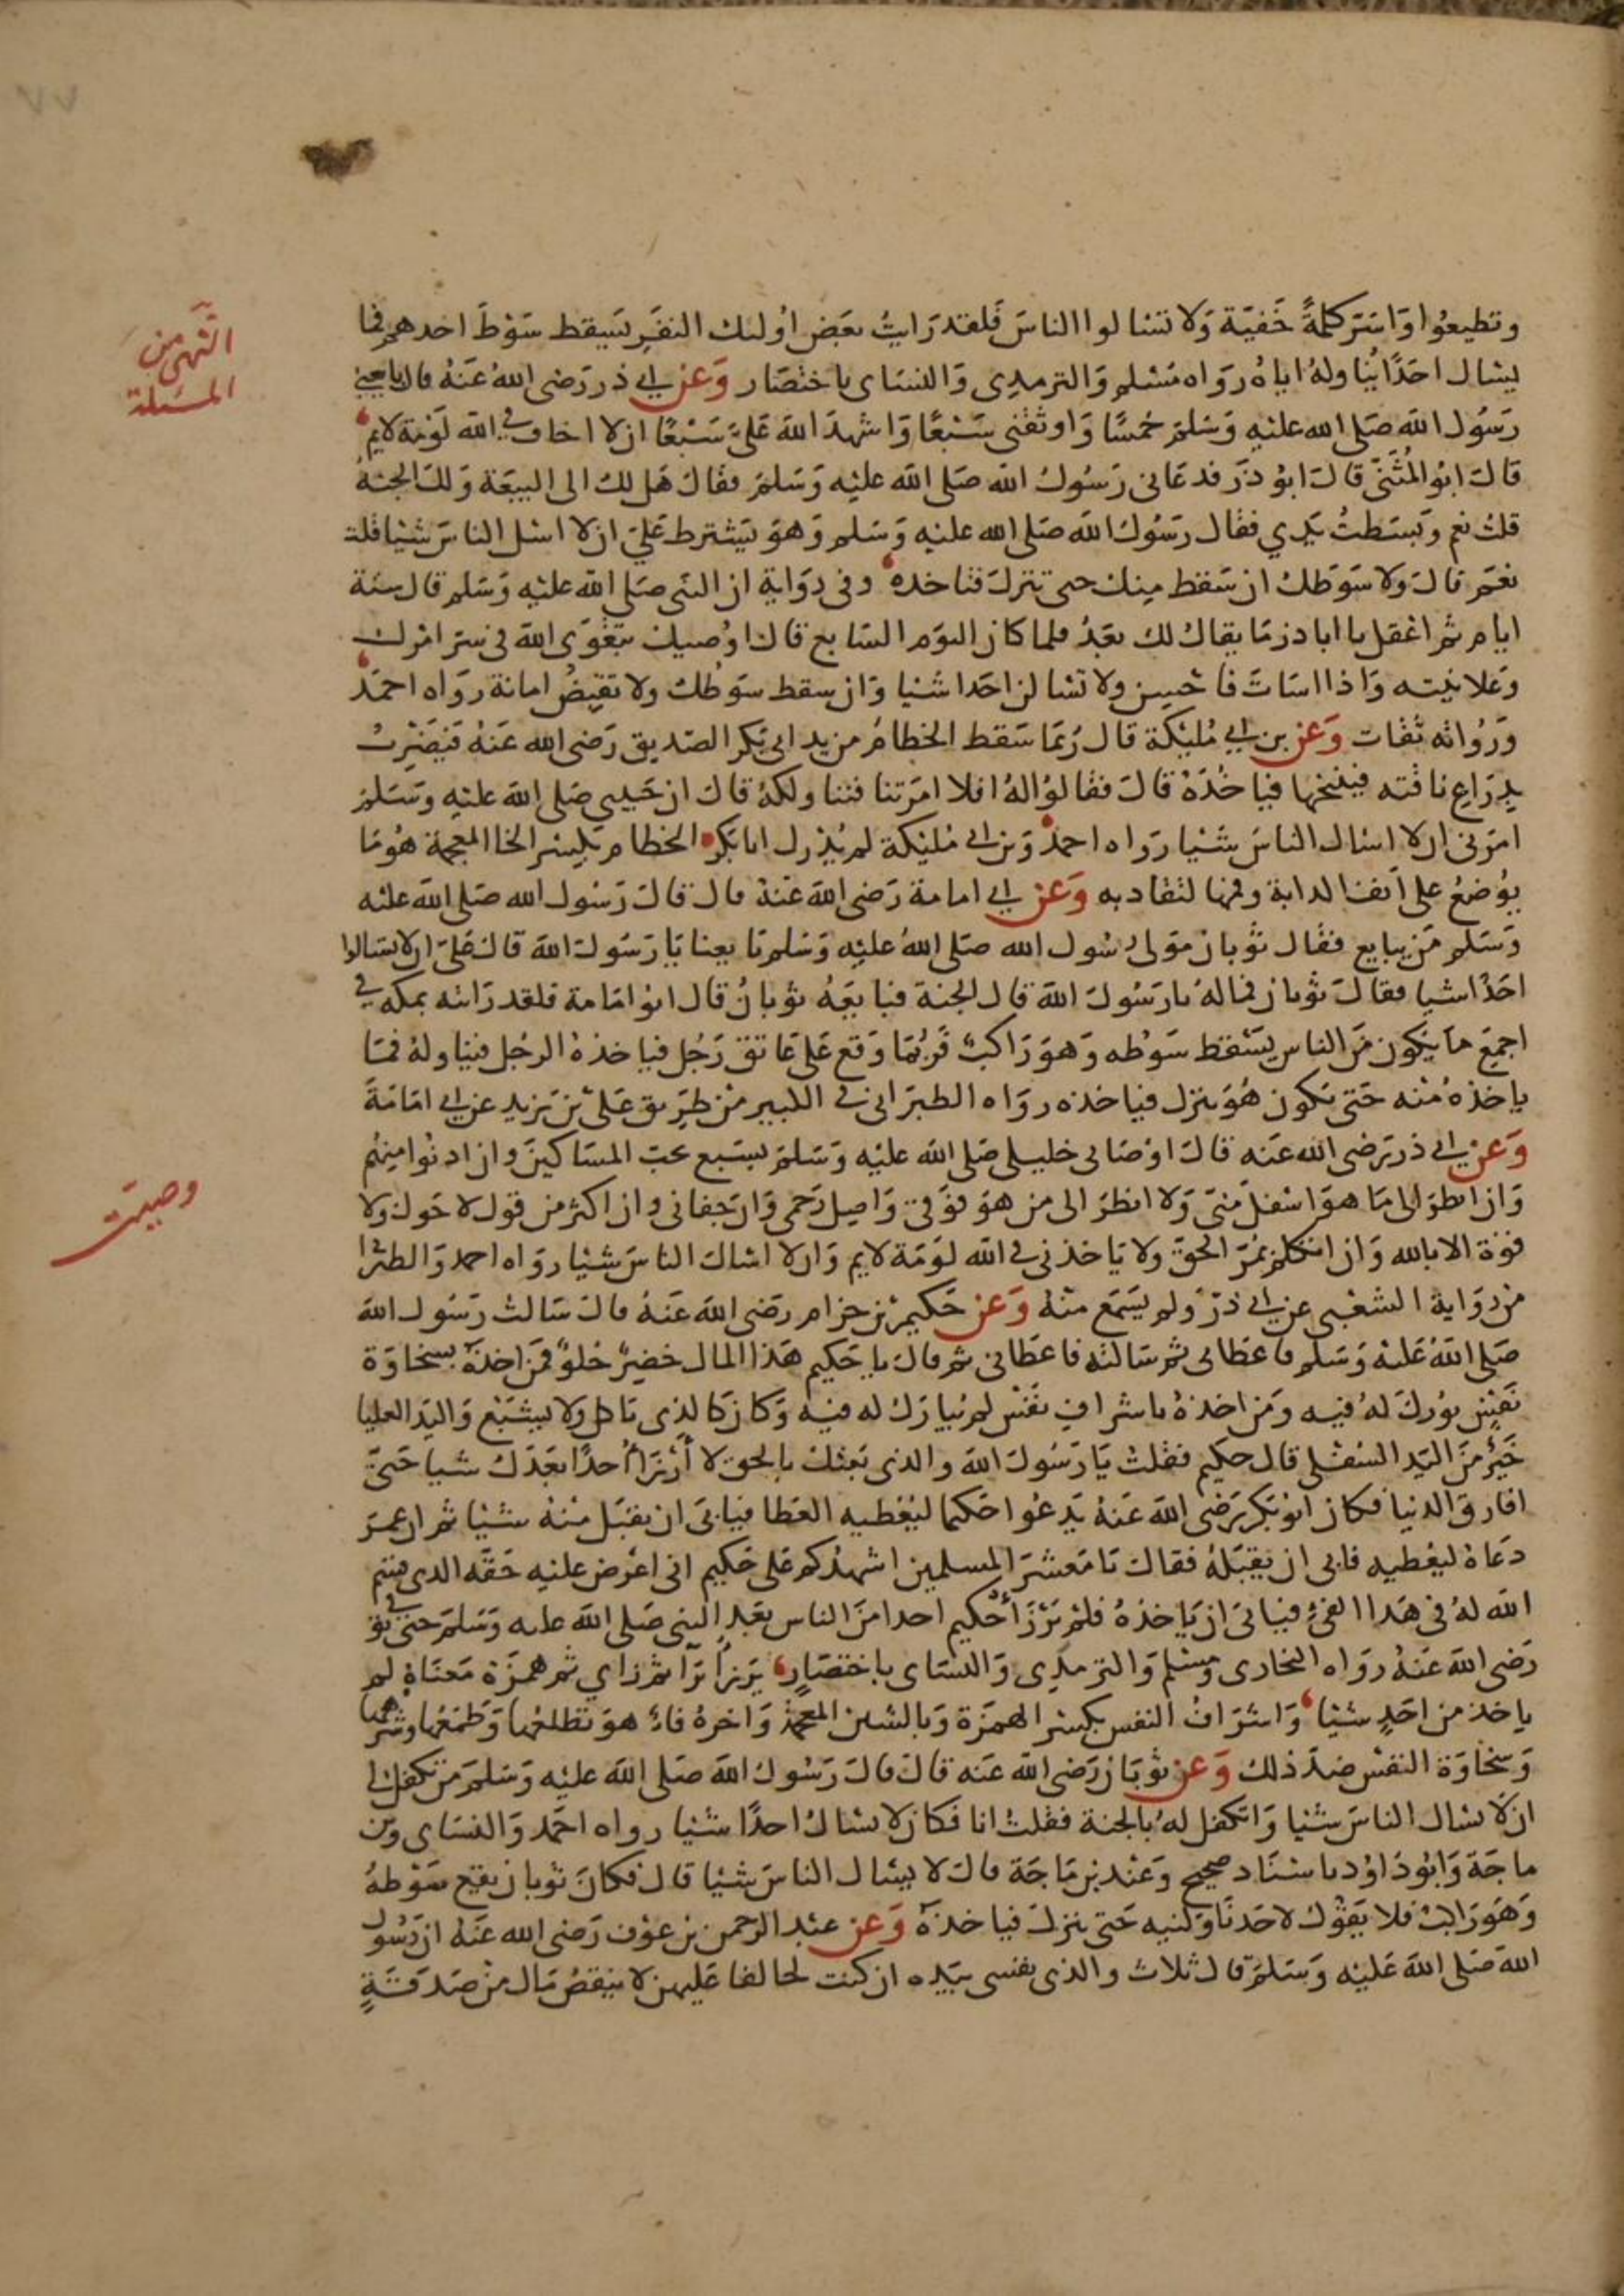 ٧٧
النهى من
المسئلة
وتطيعوا واسر كلمة خفية ولا تسالوا الناس فلقد رايت بعض اولئك النفر يسقط سوط احدهم فما
يسال احدًا يناوله اياه رواه مسلم والترمدى والنساى باختصار وعن ابي ذر رضى الله عنه قال بايعني
رسول الله صلى الله عليه وسلم خمسًا واوثقنى سبعًا واشهد الله على سبعًا ان لا اخاف في الله لومة لايم
قال ابو المثنى قال ابو ذر فدعانى رسول الله صلى الله عليه وسلم فقال هل لك الى البيعة ولك الجنة
قلت نعم وبسطت يدي فقال رسول الله صلى الله عليه وسلم وهو يشترط على ان لا اسل الناس شيا قلت
نعم قال ولا سوطك ان سقط منك حتى تنزل فتاخده وفى رواية ان النبى صلى الله عليه وسلم قال ستة
ايام ثم اعقل يا ابا ذر ما يقال لك بعد فلما كان اليوم السابع قال اوصيك بتقوى الله فى سر امرك
وعلانيته واذا اسات فاحسن ولا تسالن احدا شيا وان سقط سوطك ولا تقبض امانة رواه احمد
ورواته ثقات وعن بن ابي مليكة قال ربما سقط الخطام من يد ابى بكر الصديق رضى الله عنه فيضرب
بدراع ناقته فينخها فياخذه قال فقالوا له افلا امرتنا فنناولكه قال ان حبيبى صلى الله عليه وسلم
امرنى ان لا اسال الناس شيا رواه احمد وبن ابى مليكة لم يدرك ابا بكر الخطام بكسر الخا المعجمة هو ما
يوضع على انف الدابة وفمها لتقاد به وعن ابي امامة رضى الله عنه قال قال رسول الله صلى الله عليه
وسلم من يبايع فقال ثوبان مولى رسول الله صلى الله عليه وسلم بايعنا يا رسول الله قال على ان لا تسالوا
احدًا شيا فقال ثوبان فما له يا رسول الله قال الجنة فبايعه ثوبان قال ابو امامة فلقد رايته بمكة في
اجمع ما يكون من الناس يسقط سوطه وهو راكب فربما وقع على عاتق رجل فياخذه الرجل فيناوله فما
ياخذه منه حتى يكون هو ينزل فياخذه رواه الطبرانى فى الكبير من طريق على بن يزيد عن ابي امامة
وعن ابي ذر رضى الله عنه قال اوصانى خليلى صلى الله عليه وسلم بسبع بحب المساكين وان ادنوا منهم
وان انظر الى ما هو اسفل منى ولا انظر الى من هو فوقى واصل رحمى وان جفانى وان اكثر من قول لا حول ولا
قوة الا بالله وان اتكلم بمر الحق ولا ياخذنى فى الله لومة لايم وان لا اسال الناس شيا رواه احمد والطبرا
من رواية الشعبى عن ابي ذر ولم يسمع منه وعن حكيم بن حزام رضى الله عنه قال سالت رسول الله
صلى الله عليه وسلم فاعطانى ثم سالته فاعطانى ثم قال يا حكيم هذا المال خضر حلو فمن اخذه بسخاوة
نفس بورك له فيه ومن اخذه باشراف نفس لم يبارك له فيه وكان كالذى ياكل ولا يشبع واليد العليا
خير من اليد السفلى قال حكيم فقلت يا رسول الله والذى بعثك بالحق لا أرزأ احدًا بعدك شيا حتى
افارق الدنيا فكان ابو بكر رضى الله عنه يدعوا حكيما ليعطيه العطا فيابى ان يقبل منه شيا ثم ان عمر
دعاه ليعطيه فابى ان يقبله فقال يا معشر المسلمين اشهدكم على حكيم انى اعرض عليه حقه الذى قسم
الله له فى هذا الفئ فيابى ان ياخذه فلم يرزأ حكيم احدا من الناس بعد النبى صلى الله عليه وسلم حتى توفي
رضى الله عنه رواه البخارى ومسلم والترمدى والنساى باختصار يرزأ برا ثم زاي ثم همزة معناه لم
ياخذ من احد شيا واشراف النفس بكسر الهمزة وبالشين المعجمة واخره فاء هو تطلعها وطمعها وشرهها
وسخاوة النفس ضد ذلك وعن ثوبان رضى الله عنه قال قال رسول الله صلى الله عليه وسلم من تكفل لي
ان لا يسال الناس شيا واتكفل له بالجنة فقلت انا فكان لا يسال احدًا شيا رواه احمد والنساى وبن
ماجة وابو داود باسناد صحيح وعند بن ماجة قال لا يسال الناس شيا قال فكان ثوبان يقع سوطه
وهو راكب فلا يقول لاحد ناولنيه حتى ينزل فياخذه وعن عبد الرحمن بن عوف رضى الله عنه ان رسول
الله صلى الله عليه وسلم قال ثلاث والذى نفسى بيده ان كنت لحالفا عليهن لا ينقص مال من صدقة
وصيت